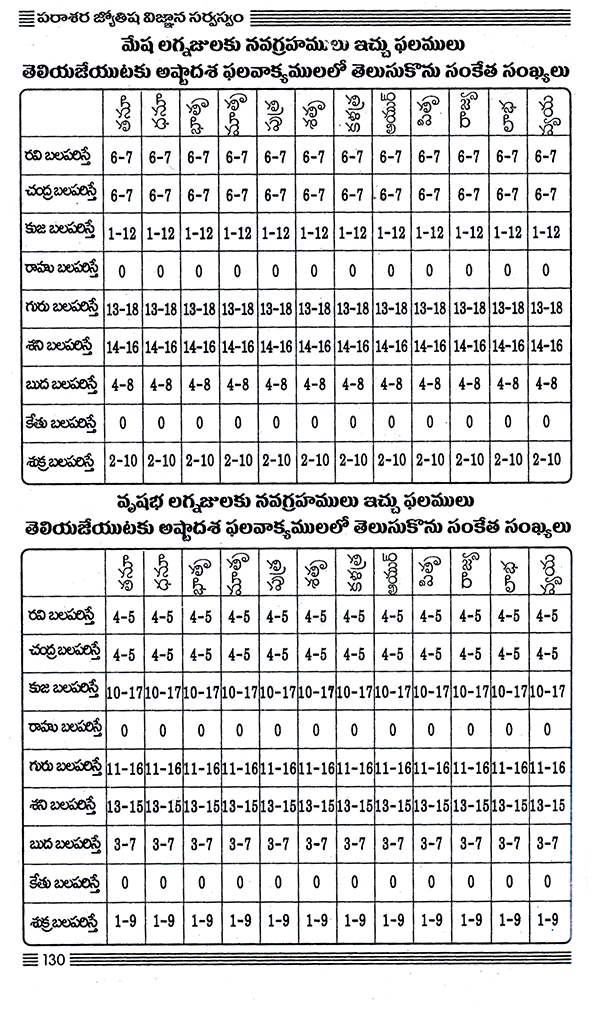 పరాశర జ్యోతిష విజ్ఞాన సర్వస్వం
మేష లగ్నజులకు నవగ్రహములు ఇచ్చు ఫలములు
తెలియజేయుటకు అష్టాదశ ఫలవాక్యములలో తెలుసుకొను సంకేత సంఖ్యలు
రాజ్య లాభ వ్యయ
రవి బలపరిస్తే 6-7 6-7 6-7 6-7 6-7 6-7 6-7 6-7 6-7 6-7 6-7 6-7
చంద్ర బలపరిస్తే 6-7 6-7 6-7 6-7 6-7 6-7 6-7 6-7 6-7 6-7 6-7 6-7
కుజ బలపరిస్తే 1-12 1-12 1-12 1-12 1-12 1-12 1-12 1-12 1-12 1-12 1-12 1-12
రాహు బలపరిస్తే 0 0 0 0 0 0 0 0 0 0 0 0
గురు బలపరిస్తే 13-18 13-18 13-18 13-18 13-18 13-18 13-18 13-18 13-18 13-18 13-18 13-18
శని బలపరిస్తే 14-16 14-16 14-16 14-16 14-16 14-16 14-16 14-16 14-16 14-16 14-16 14-16
బుద బలపరిస్తే 4-8 4-8 4-8 4-8 4-8 4-8 4-8 4-8 4-8 4-8 4-8 4-8
కేతు బలపరిస్తే 0 0 0 0 0 0 0 0 0 0 0 0
శుక్ర బలపరిస్తే 2-10 2-10 2-10 2-10 2-10 2-10 2-10 2-10 2-10 2-10 2-10 2-10
వృషభ లగ్నజులకు నవగ్రహములు ఇచ్చు ఫలములు
తెలియజేయుటకు అష్టాదశ ఫలవాక్యములలో తెలుసుకొను సంకేత సంఖ్యలు
రాజ్య లాభ వ్యయ
రవి బలపరిస్తే 4-5 4-5 4-5 4-5 4-5 4-5 4-5 4-5 4-5 4-5 4-5 4-5
చంద్ర బలపరిస్తే 4-5 4-5 4-5 4-5 4-5 4-5 4-5 4-5 4-5 4-5 4-5 4-5
కుజ బలపరిస్తే 10-17 10-17 10-17 10-17 10-17 10-17 10-17 10-17 10-17 10-17 10-17 10-17
రాహు బలపరిస్తే 0 0 0 0 0 0 0 0 0 0 0 0
గురు బలపరిస్తే 11-16 11-16 11-16 11-16 11-16 11-16 11-16 11-16 11-16 11-16 11-16 11-16
శని బలపరిస్తే 13-15 13-15 13-15 13-15 13-15 13-15 13-15 13-15 13-15 13-15 13-15 13-15
బుద బలపరిస్తే 3-7 3-7 3-7 3-7 3-7 3-7 3-7 3-7 3-7 3-7 3-7 3-7
కేతు బలపరిస్తే 0 0 0 0 0 0 0 0 0 0 0 0
శుక్ర బలపరిస్తే 1-9 1-9 1-9 1-9 1-9 1-9 1-9 1-9 1-9 1-9 1-9 1-9
130